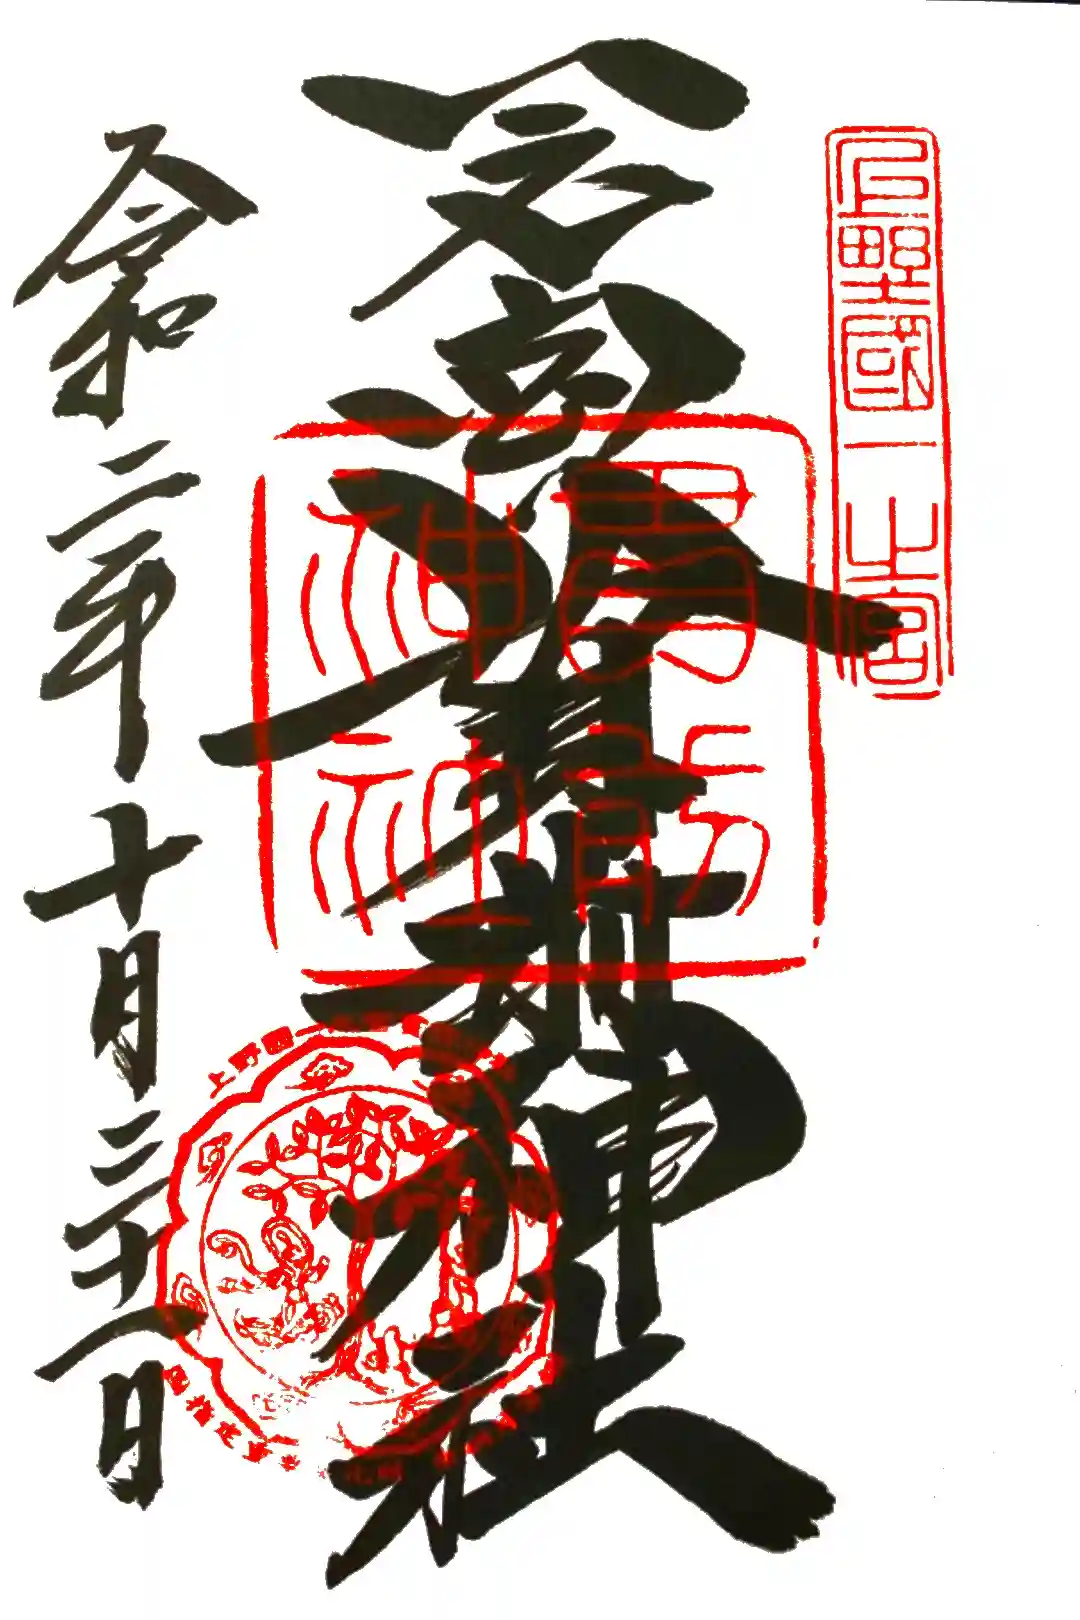 上野國一之宮
一之宮貫前神社
令和二年十月三十一日
貫前神社
上野國一
指定重要